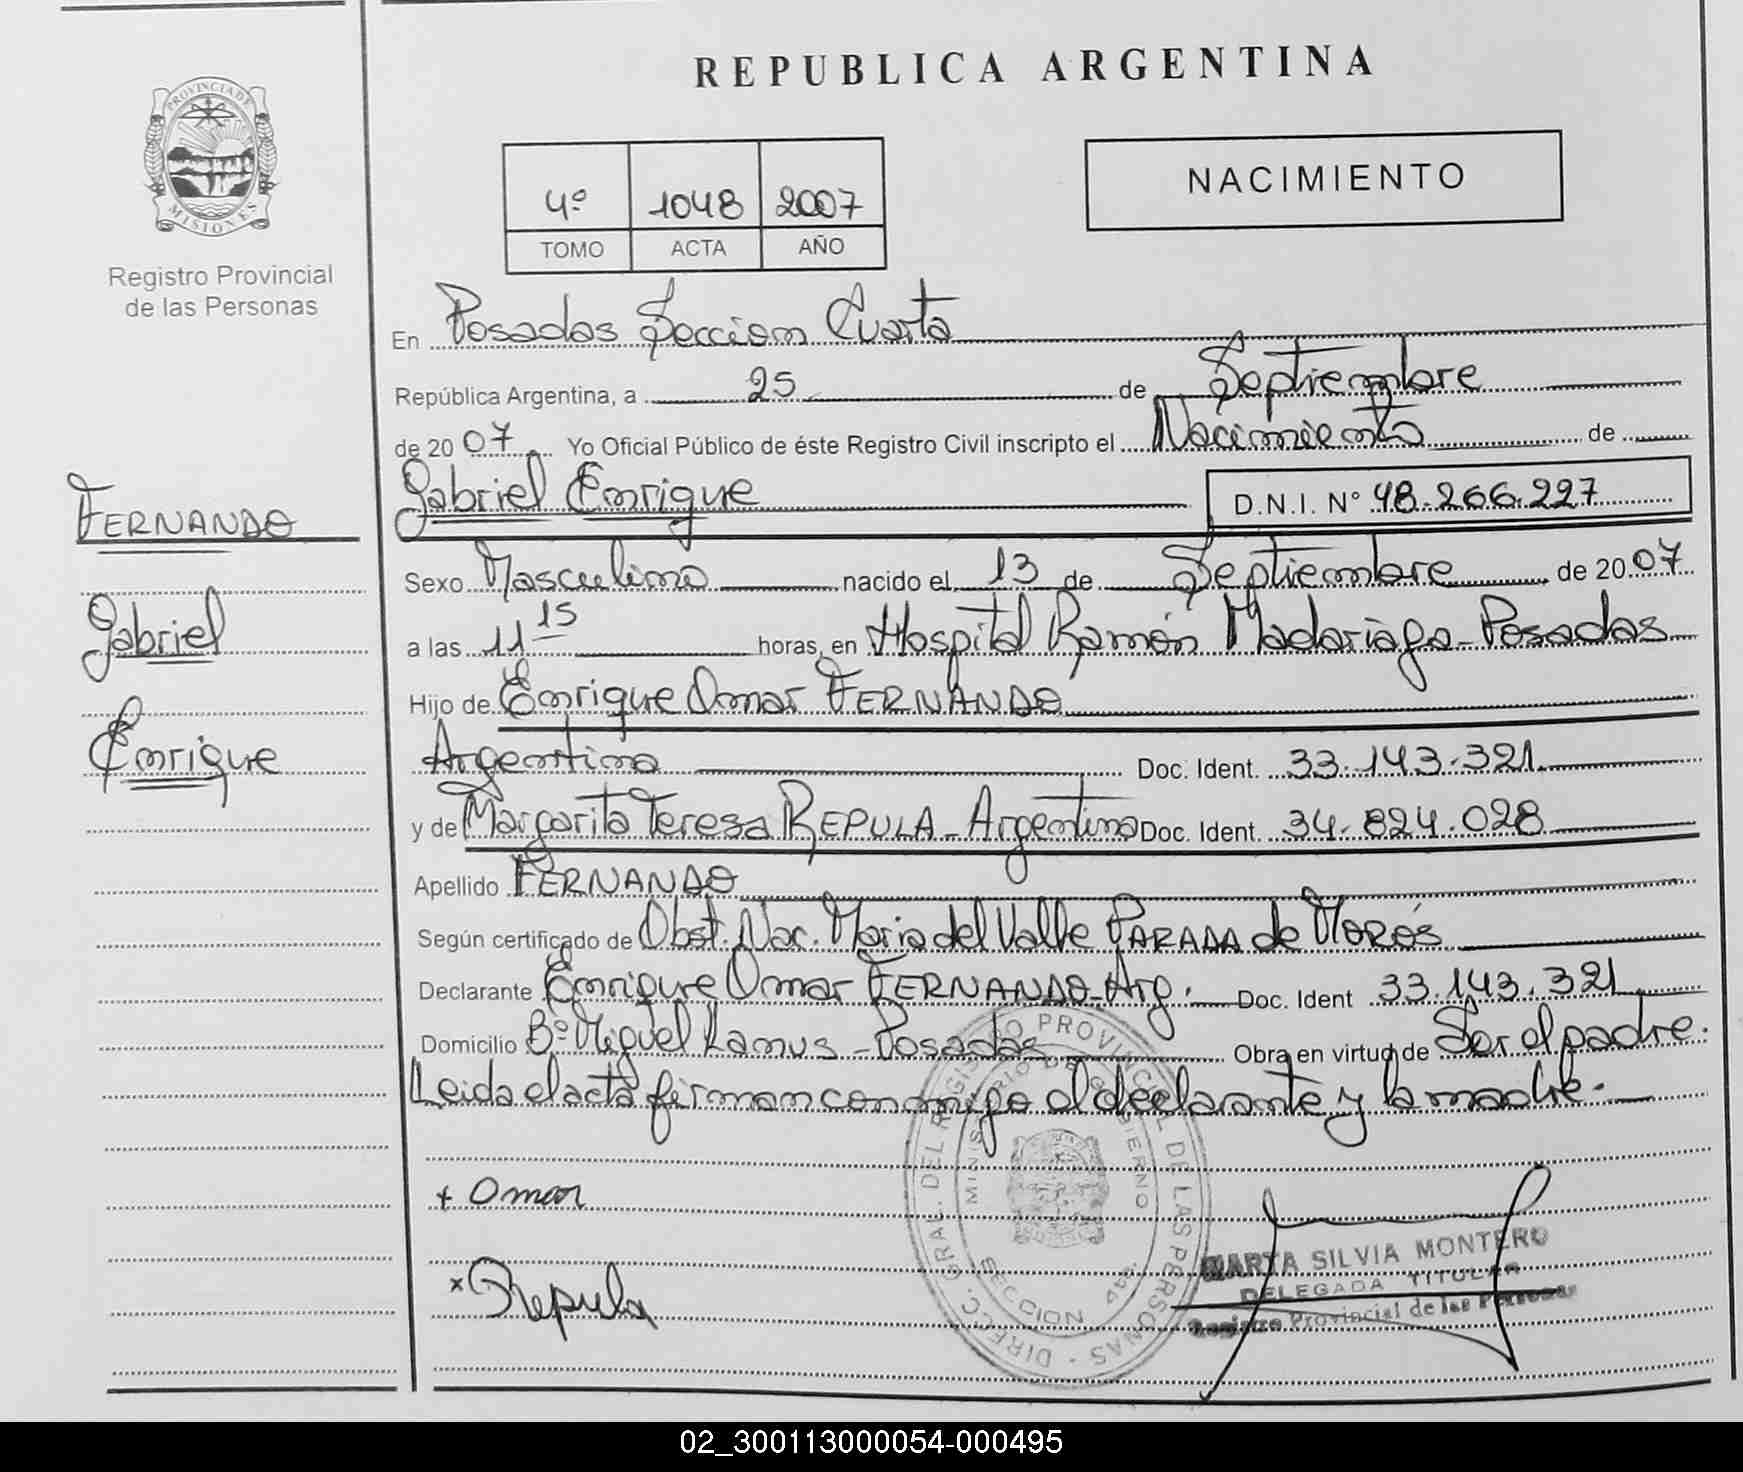 REPUBLICA ARGENTINA
PROVINCIA DE
MISIONES
Registro Provincial
de las Personas
4º 1048 2007
TOMO ACTA AÑO
NACIMIENTO
En Posadas Seccion Cuarta
República Argentina, a 25 de Septiembre
de 2007 Yo Oficial Público de éste Registro Civil inscripto el Nacimiento de
Gabriel Enrique D.N.I. Nº 48.266.227
FERNANDO
Gabriel
Enrique
Sexo Masculino nacido el 13 de Septiembre de 2007
a las 11 15 horas, en Hospital Ramón Madariaga - Posadas
Hijo de Enrique Omar FERNANDO
Argentino Doc. Ident. 33.143.321
y de Margarita Teresa REPULA - Argentina Doc. Ident. 34.824.028
Apellido FERNANDO
Según certificado de Obst. Nac. Maria del Valle PARADA de MOROS
Declarante Enrique Omar FERNANDO - Arg. Doc. Ident 33.143.321
Domicilio Bº Miguel Lanus - Posadas Obra en virtud de Ser el padre.
Leida el acta firman conmigo el declarante y la madre.
x Omar
x Repula
DIRECC. GRAL. DEL REGISTRO PROVINCIAL DE LAS PERSONAS
MINISTERIO DE GOBIERNO
SECCION 4ta
MARTA SILVIA MONTERO
DELEGADA TITULAR
Registro Provincial de las Personas
02_300113000054-000495